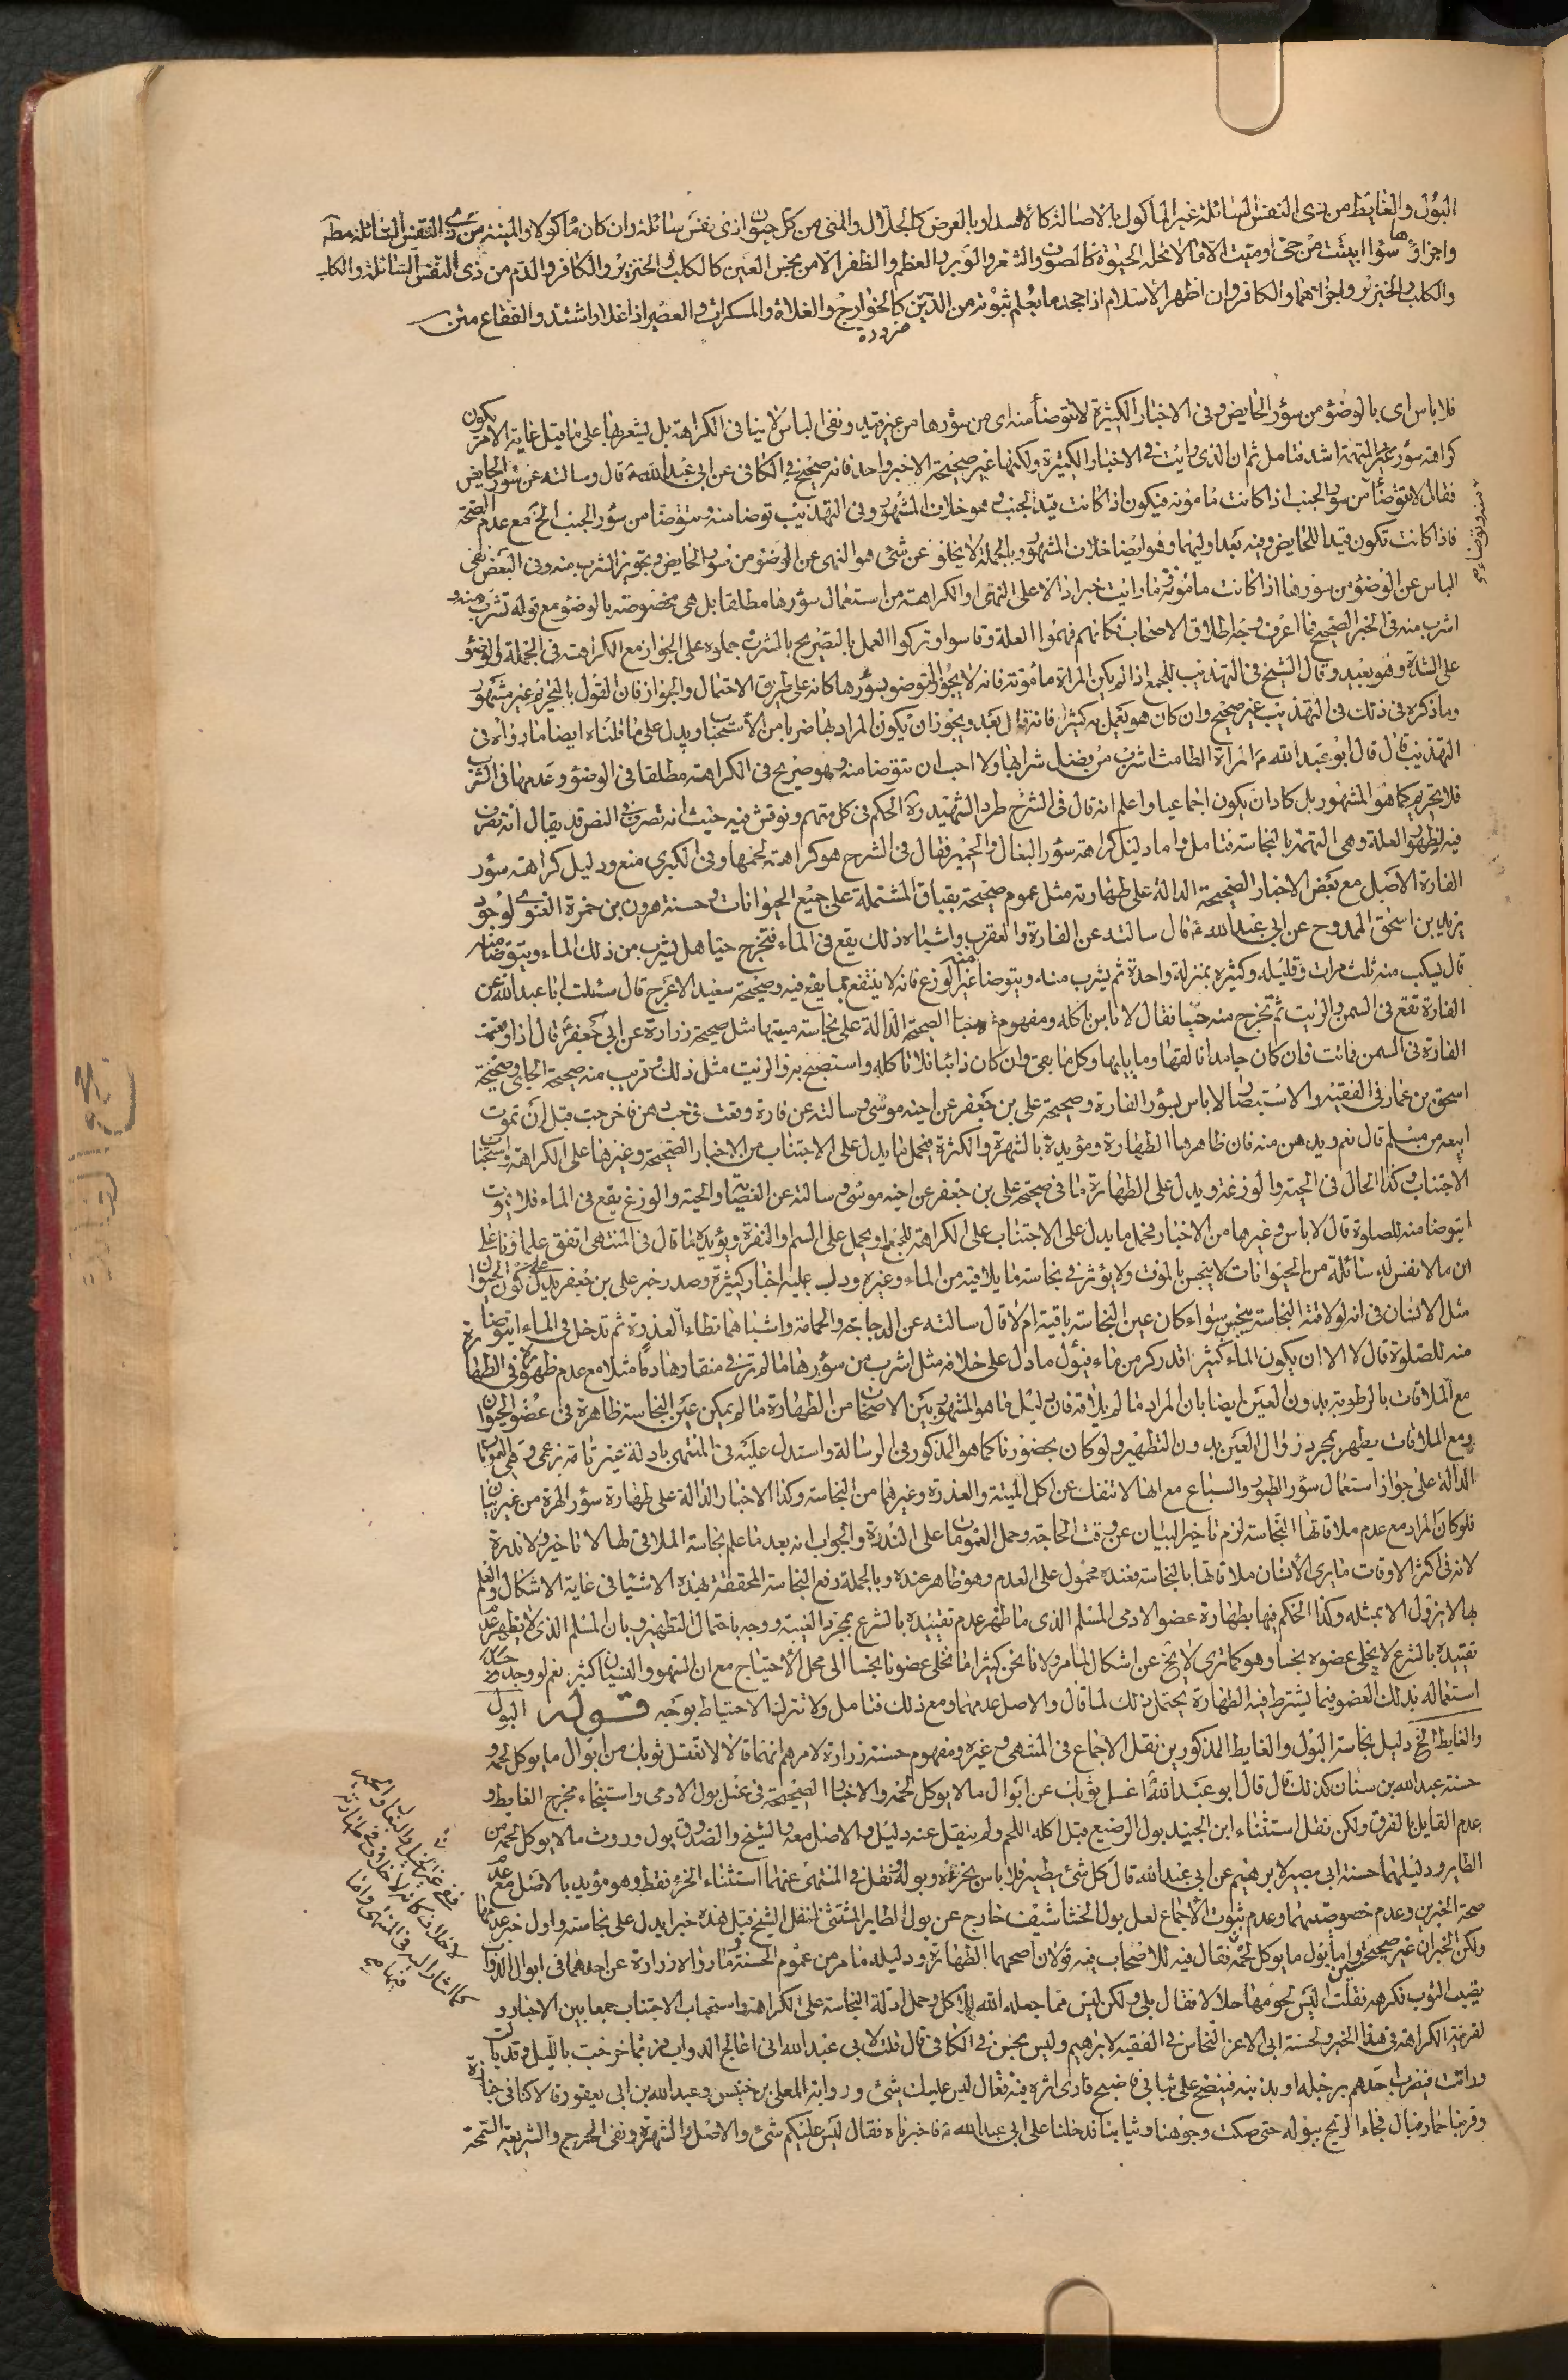 البول والغايط من ذى النفس السائلة غير المأكول بالاصالة كالاسد او بالعرض كالجلال والمنى من كل حيوان ذى نفس سائلة وان كان مأكولا والميتة من ذى النفس السائلة مطـ
واجزاؤها سوا ابينت من حى او ميت الا ما لا تحله الحيوة كالصوف والشعر والوبر والعظم والظفر الا من نجس العين كالكلب والخنزير والكافر والدم من ذى النفس السائلة والكلب
والكلب والخنزير واجزائهما والكافر وان اظهر الاسلام اذا جحد ما يعلم ثبوته من الدين ضرورة كالخوارج والغلاة والمسكرات والعصير اذا غلا واشتد والفقاع متن
فلا باس اى بالوضؤ من سؤر الحايض وفى الاخبار الكثيرة لا تتوضأ منه اى من سؤرها من غير قيد ونفى الباس لا ينافى الكراهة بل يشعر بها على ما قيل غاية الامر يكون
كراهة سؤر غير المتهمة اشد فتامل ثم ان الذى رايت فى الاخبار الكثيرة ولكنها غير صحيحة الا خبر واحد فانه صحيح فى الكافى عن ابى عبد الله ع قال وسالته عن سؤر الحايض
فقال لا تتوضأ من سؤر الجنب اذا كانت مأمونه فيكون اذا كانت قيد الجنب وهو خلاف المشهور وفى التهذيب توضا منه وتتوضا من سؤر الجنب الخ مع عدم الصحة
فاذا كانت تكون قيد اللحايض وفيه بعد اوليهما وهو ايضا خلاف المشهور وبالجملة لا يخلو عن شئ هو النهى عن الوضؤ من سؤر الحايض وتجويز الشرب منه وفى البعض نفى
الباس عن الوضؤ من سؤرها اذا كانت مامونة فما رايت خبرا دالا على النهى او الكراهة من استعمال سؤرها مطلقا بل هى مخصوصة بالوضؤ مع قوله تشرب منه و
اشرب منه فى الخبر الصحيح فما اعرف وجه اطلاق الاصحاب فكانهم فهموا العلة وقاسوا وتركوا العمل بالتصريح بالشرب حملوه على الجواز مع الكراهة فى الجملة والوضؤ
على الشدة وهو بعيد وقال الشيخ فى التهذيب للجمع اذا لم يكن المراة مأمونة فانه لا يجوز التوضو بسؤرها كانه على طريق الاحتمال والجواز فان القول بالتحريم غير مشهور
وما ذكره فى ذلك فى التهذيب غير صحيح وان كان هو يعمل به كثيرا فانه قال بعد ويجوز ان يكون المراد بها ضربا من الاستحباب ويدل على ما قلناه ايضا ما رواه فى
التهذيب قال قال ابو عبد الله ع المراة الطامث اشرب من فضل شرابها ولا احب ان تتوضا منه وهو صريح فى الكراهة مطلقا فى الوضؤ وعدمها فى الشرب
فلا تحريم كما هو المشهور بل كاد ان يكون اجماعيا واعلم انه قال فى الشرح طرد الشهيد ره الحكم فى كل متهم ونوقش فيه حيث انه تصرف فى النص قد يقال انه تصرف
فيه لظهور العلة وهى التهمة بالنجاسة فتامل واما دليل كراهة سؤر البغال والحمير فقال فى الشرح هو كراهة لحمها وفى الكبرى منع ودليل كراهة سؤر
الفارة الاصل مع بعض الاخبار الصحيحة الدالة على طهارته مثل عموم صحيحة بقباق المشتملة على جميع الحيوانات وحسنة هرون بن حمزة الغنوى لوجود
يزيد بن اسحق الممدوح عن ابى عبد الله ع قال سالته عن الفارة والعقرب واشباه ذلك يقع فى الماء فتخرج حيا هل يشرب من ذلك الماء ويتوضا منه
قال يسكب منه ثلث مرات وقليله وكثيره بمنزلة واحدة ثم يشرب منه ويتوضأ منه غير الوزغ فانه لا ينتفع بما يقع فيه وصحيحة سعيد الاعرج قال سئلت ابا عبد الله عن
الفارة تقع فى السمن والزيت ثم تخرج منه حيا فقال لا باس باكله ومفهوم الاخبار الصحيحة الدالة على نجاسة ميتها مثل صحيحة زرارة عن ابى جعفر ع قال اذا وقعت
الفارة فى السمن فماتت فان كان جامدا فالقها وما يليها وكل ما بقى وان كان ذائبا فلا تاكله واستصبح به والزيت مثل ذلك وقريب منه صحيحة الحلبى وصحيحة
اسحق بن عمار فى الفقيه والاستبصار لا باس بسؤر الفارة وصحيحة على بن جعفر عن اخيه موسى وسالته عن فارة وقعت فى حب دهن فاخرجت قبل ان تموت
ايبيعه من مسلم قال نعم ويدهن منه فان ظاهرها الطهارة ومؤيدة بالشهرة والكثرة فيحمل ما يدل على الاجتناب من الاخبار الصحيحة وغيرها على الكراهة واستحباب
الاجتناب وكذا الحال فى الحية والوزغة ويدل على الطهارة ما فى صحيحة على بن جعفر عن اخيه موسى وسالته عن العضاية والحية والوزغ يقع فى الماء فلا يموت
ايتوضا منه للصلوة قال لا باس وغيرها من الاخبار فيحمل ما يدل على الاجتناب على الكراهة للجمع او يحمل على السم والنفرة ويؤيده ما قال فى المنتهى اتفق علماؤنا على
ان ما لا نفس له سائلة من الحيوانات لا ينجس بالموت ولا يؤثر فى نجاسة ما يلاقيه من الماء وغيره ودلت عليه اخبار كثيرة وصدر خبر على بن جعفر يدل على كون الحيوان
مثل الانسان فى انه لو لاقته النجاسة ينجس سواء كان عين النجاسة باقية ام لا قال سالته عن الدجاجة والحمامة واشباهما تطاء العذرة ثم تدخل فى الماء ايتوضا
منه للصلوة قال لا الا ان يكون الماء كثيرا قدر كر من ماء فيؤل ما دل على خلافه مثل اشرب من سؤرها ما لم تر فى منقارها دما مثلا مع عدم ظهوره فى الطهارة
مع الملاقات بالرطوبة بدون العين ايضا بان المراد ما لم يلاقه فان دليل ما هو المشهور بين الاصحاب من الطهارة ما لم يكن عين النجاسة ظاهرة فى عضو الحيوان
ومع الملاقات يطهر بمجرد زوال العين بدون التطهير ولو كان بحضورنا كما هو المذكور فى الرسالة واستدل عليه فى المنتهى بادلة غير تامة بزعمى وهى العمومات
الدالة على جواز استعمال سؤر الطيور والسباع مع انها لا تنفك عن اكل الميتة والعذرة وغيرهما من النجاسة وكذا الاخبار الدالة على طهارة سؤر الهرة من غير بيان
فلو كان المراد مع عدم ملاقاتها النجاسة لزم تاخير البيان عن وقت الحاجة وحمل العمومات على الندرة والجواب انه بعد ما علم نجاسة الملاقى لها لا تاخير ولا ندرة
لانه فى اكثر الاوقات ما يرى الانسان ملاقاتها بالنجاسة فعنده محمول على العدم وهو ظاهر عنده وبالجملة رفع النجاسة المحققة بهذه الاشياء فى غاية الاشكال والعلم
بها لا يزول الا بمثله وكذا الحكم فيها بطهارة عضو الادمى المسلم الذى ما ظهر عدم تقييده بالشرع بمجرد الغيبة ووجه باحتمال التطهير وبان المسلم الذى لا يظهر عدم
تقييده بالشرع لا يخلى عضوه نجسا وهو كما ترى لا يخ عن اشكال لما مر ولانا نحن كثيرا ما نخلى عضونا نجسا الى محل الاحتياج مع ان السهو والنسيان كثير نعم لو وجد
استعماله بذلك العضو فيما يشترط فيه الطهارة يحتمل ذلك لما قال والاصل عدمهما ومع ذلك فتامل ولا تترك الاحتياط بوجه قوله البول
والغايط الخ دليل نجاسة البول والغايط المذكورين نقل الاجماع فى المنتهى وغيره ومفهوم حسنة زرارة لامرهم انهما قالا لا تغسل ثوبك من ابوال ما يوكل لحمه و
حسنة عبد الله بن سنان كذلك قال قال ابو عبد الله ع اغسل ثوبك عن ابوال ما لا يوكل لحمه والاخبار الصحيحة فى غسل بول الادمى واستنجاء مخرج الغايط و
عدم القايل بالفرق ولكن نقل استثناء ابن الجنيد بول الرضيع قبل اكله اللحم ولم ينقل عنه دليل والاصل معه والشيخ والصدوق بول وروث ما لا يوكل لحمه من
الطاير ودليلهما حسنة ابى بصير لابرهيم عن ابى عبد الله قال كل شئ يطير فلا باس بخرئه وبوله ونقل فى المنتهى عنهما استثناء الخرء فقط وهو مؤيد بالاصل مع عدم
صحة الخبرين وعدم خصوصيتهما وعدم ثبوت الاجماع لعل بول الخشاشيف خارج عن بول الطاير المستثنى لنقل الشيخ قبل هذه خبرا يدل على نجاسته واول خبر عدمها
ولكن الخبران غير صحيحين واما بول ما يوكل لحمه فقال فيه للاصحاب فيه قولان اصحهما الطهارة ودليله ما مر من عموم الحسنة وما رواه زرارة عن احدهما فى ابوال الدواب
يصيب الثوب فكرهه فقلت اليس لحومها حلالا فقال بلى ولكن ليس مما جعله الله للاكل وحمل ادلة النجاسة على الكراهة واستحباب الاجتناب جمعا بين الاخبار و
لقرينة الكراهة فى هذا الخبر ولحسنة ابى الاعز النخاس فى الفقيه لابرهيم وليس بحسن فى الكافى قال قلت لابى عبد الله انى اعالج الدواب فربما خرجت بالليل وقد بالت
وراثت فيضرب احدهم برجله او بيد نبه فينضح على ثيابى فاصبح فارى اثره فيه فقال ليس عليك شئ ورواية المعلى بن خنيس وعبد الله بن ابى يعفور قالا كنا فى جنازة
وقربنا حمار فبال فجاءت الريح ببوله حتى صكت وجوهنا وثيابنا فدخلنا على ابى عبد الله ع فاخبرناه فقال ليس عليكم شئ والاصل والشهرة ونفى الحرج والشريعة السمحة